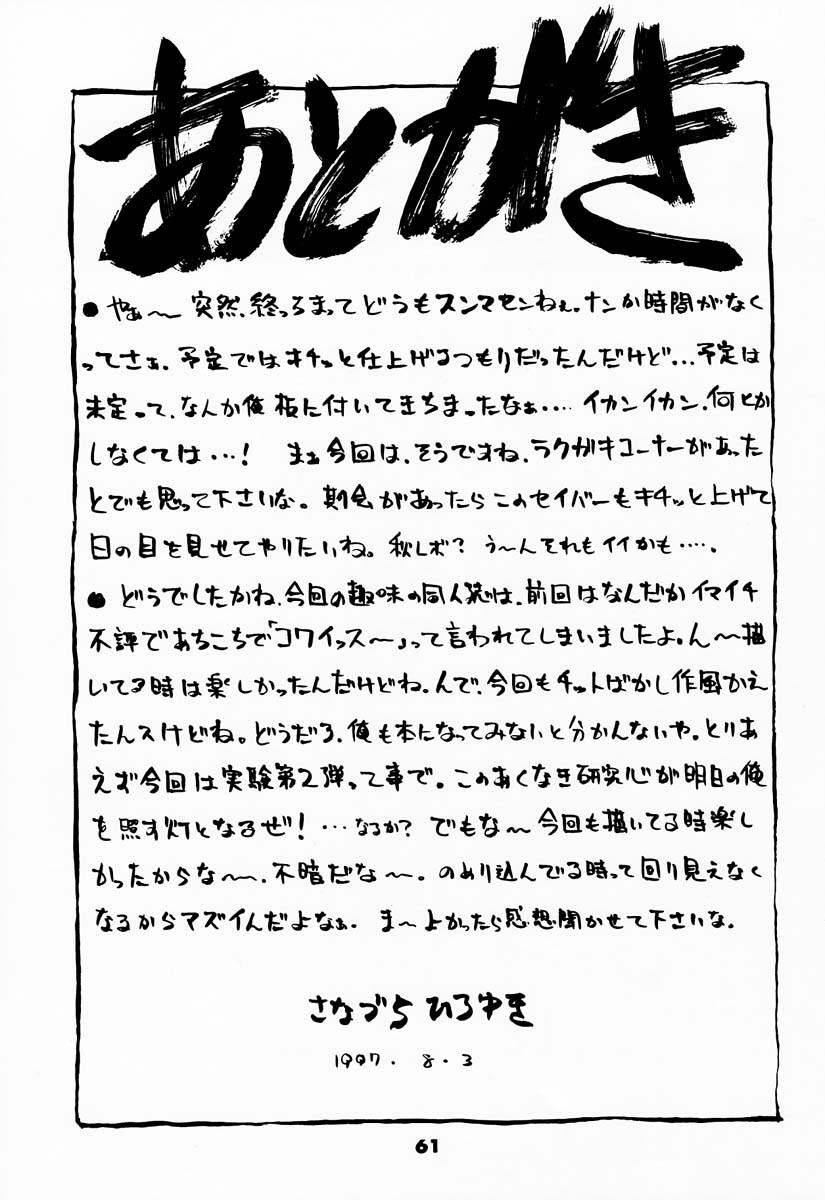 あとがき
● やぁ〜 突然、終っちまってどうもスンマセンねぇ。ナンか時間がなく
ってさぁ、予定ではキチッと仕上げるつもりだったんだけど…予定は
未定って、なんか俺 板に付いてきちまったなぁ…. イカンイカン、何とか
しなくては…! まぁ今回は、そうですね、ラクガキコーナーがあった
とでも思って下さいな。 機会があったらこのセイバーもキチッと上げて
日の目を見せてやりたいね。秋レボ? う〜んそれもイイかも….
● どうでしたかね、今回の趣味の同人誌は、前回はなんだかイマイチ
不評であちこちで「コワイッス〜」って言われてしまいましたよ。ん〜描
いてる時は楽しかったんだけどね。んで、今回もチットばかし作風かえ
たんスけどね。どうだろ、俺も本になってみないと分かんないや。とりあ
えず今回は実験第2弾って事で。このあくなき研究心が明日の俺
を照す灯となるぜ! …なるか? でもな〜今回も描いてる時楽し
かったからな〜、不暗だな〜。のめり込んでる時って回り見えなく
なるからマズイんだよなぁ. ま〜よかったら感想聞かせて下さいな。
さなづら ひろゆき
1997. 8.3
61